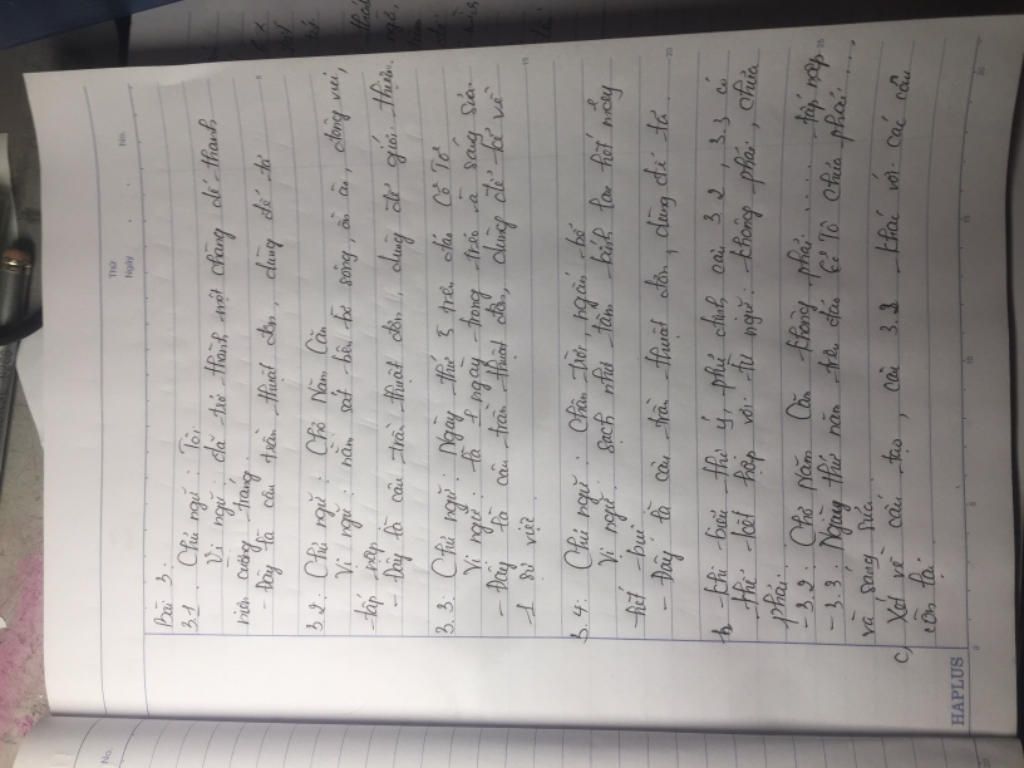 Thứ
Ngày
No.
Bài 3:
3.1. Chủ ngữ: Tôi
Vị ngữ: đã trở thành một chàng dế thanh
niên cường tráng
- Đây là câu trần thuật đơn, dùng để tả
3.2: Chủ ngữ: Chợ Năm Căn
Vị ngữ: nằm sát bên bờ sông, ồn ào, đông vui,
tấp nập
- Đây là câu trần thuật đơn, dùng để giới thiệu
3.3: Chủ ngữ: Ngày thứ 5 trên đảo Cô Tô
Vị ngữ: là 1 ngày trong trẻo và sáng sủa
- Đây là câu trần thuật đơn, dùng để kể về
1 sự việc
3.4: Chủ ngữ: chân trời, ngấn bể
Vị ngữ: sạch như tấm kính lau hết mây
hết bụi
- Đây là câu trần thuật đơn, dùng để tả
b, Khi biểu thị ý phủ định, câu 3.2, 3.3 có
thể kết hợp với từ ngữ: không phải, chưa
phải
- 3.2: Chợ Năm Căn không phải ..... tấp nập
- 3.3: Ngày thứ năm trên đảo Cô Tô chưa phải .....
và sáng sủa.
c, Xét về cấu tạo, câu 3.2 khác với các câu
còn lại
HAPLUS
No.